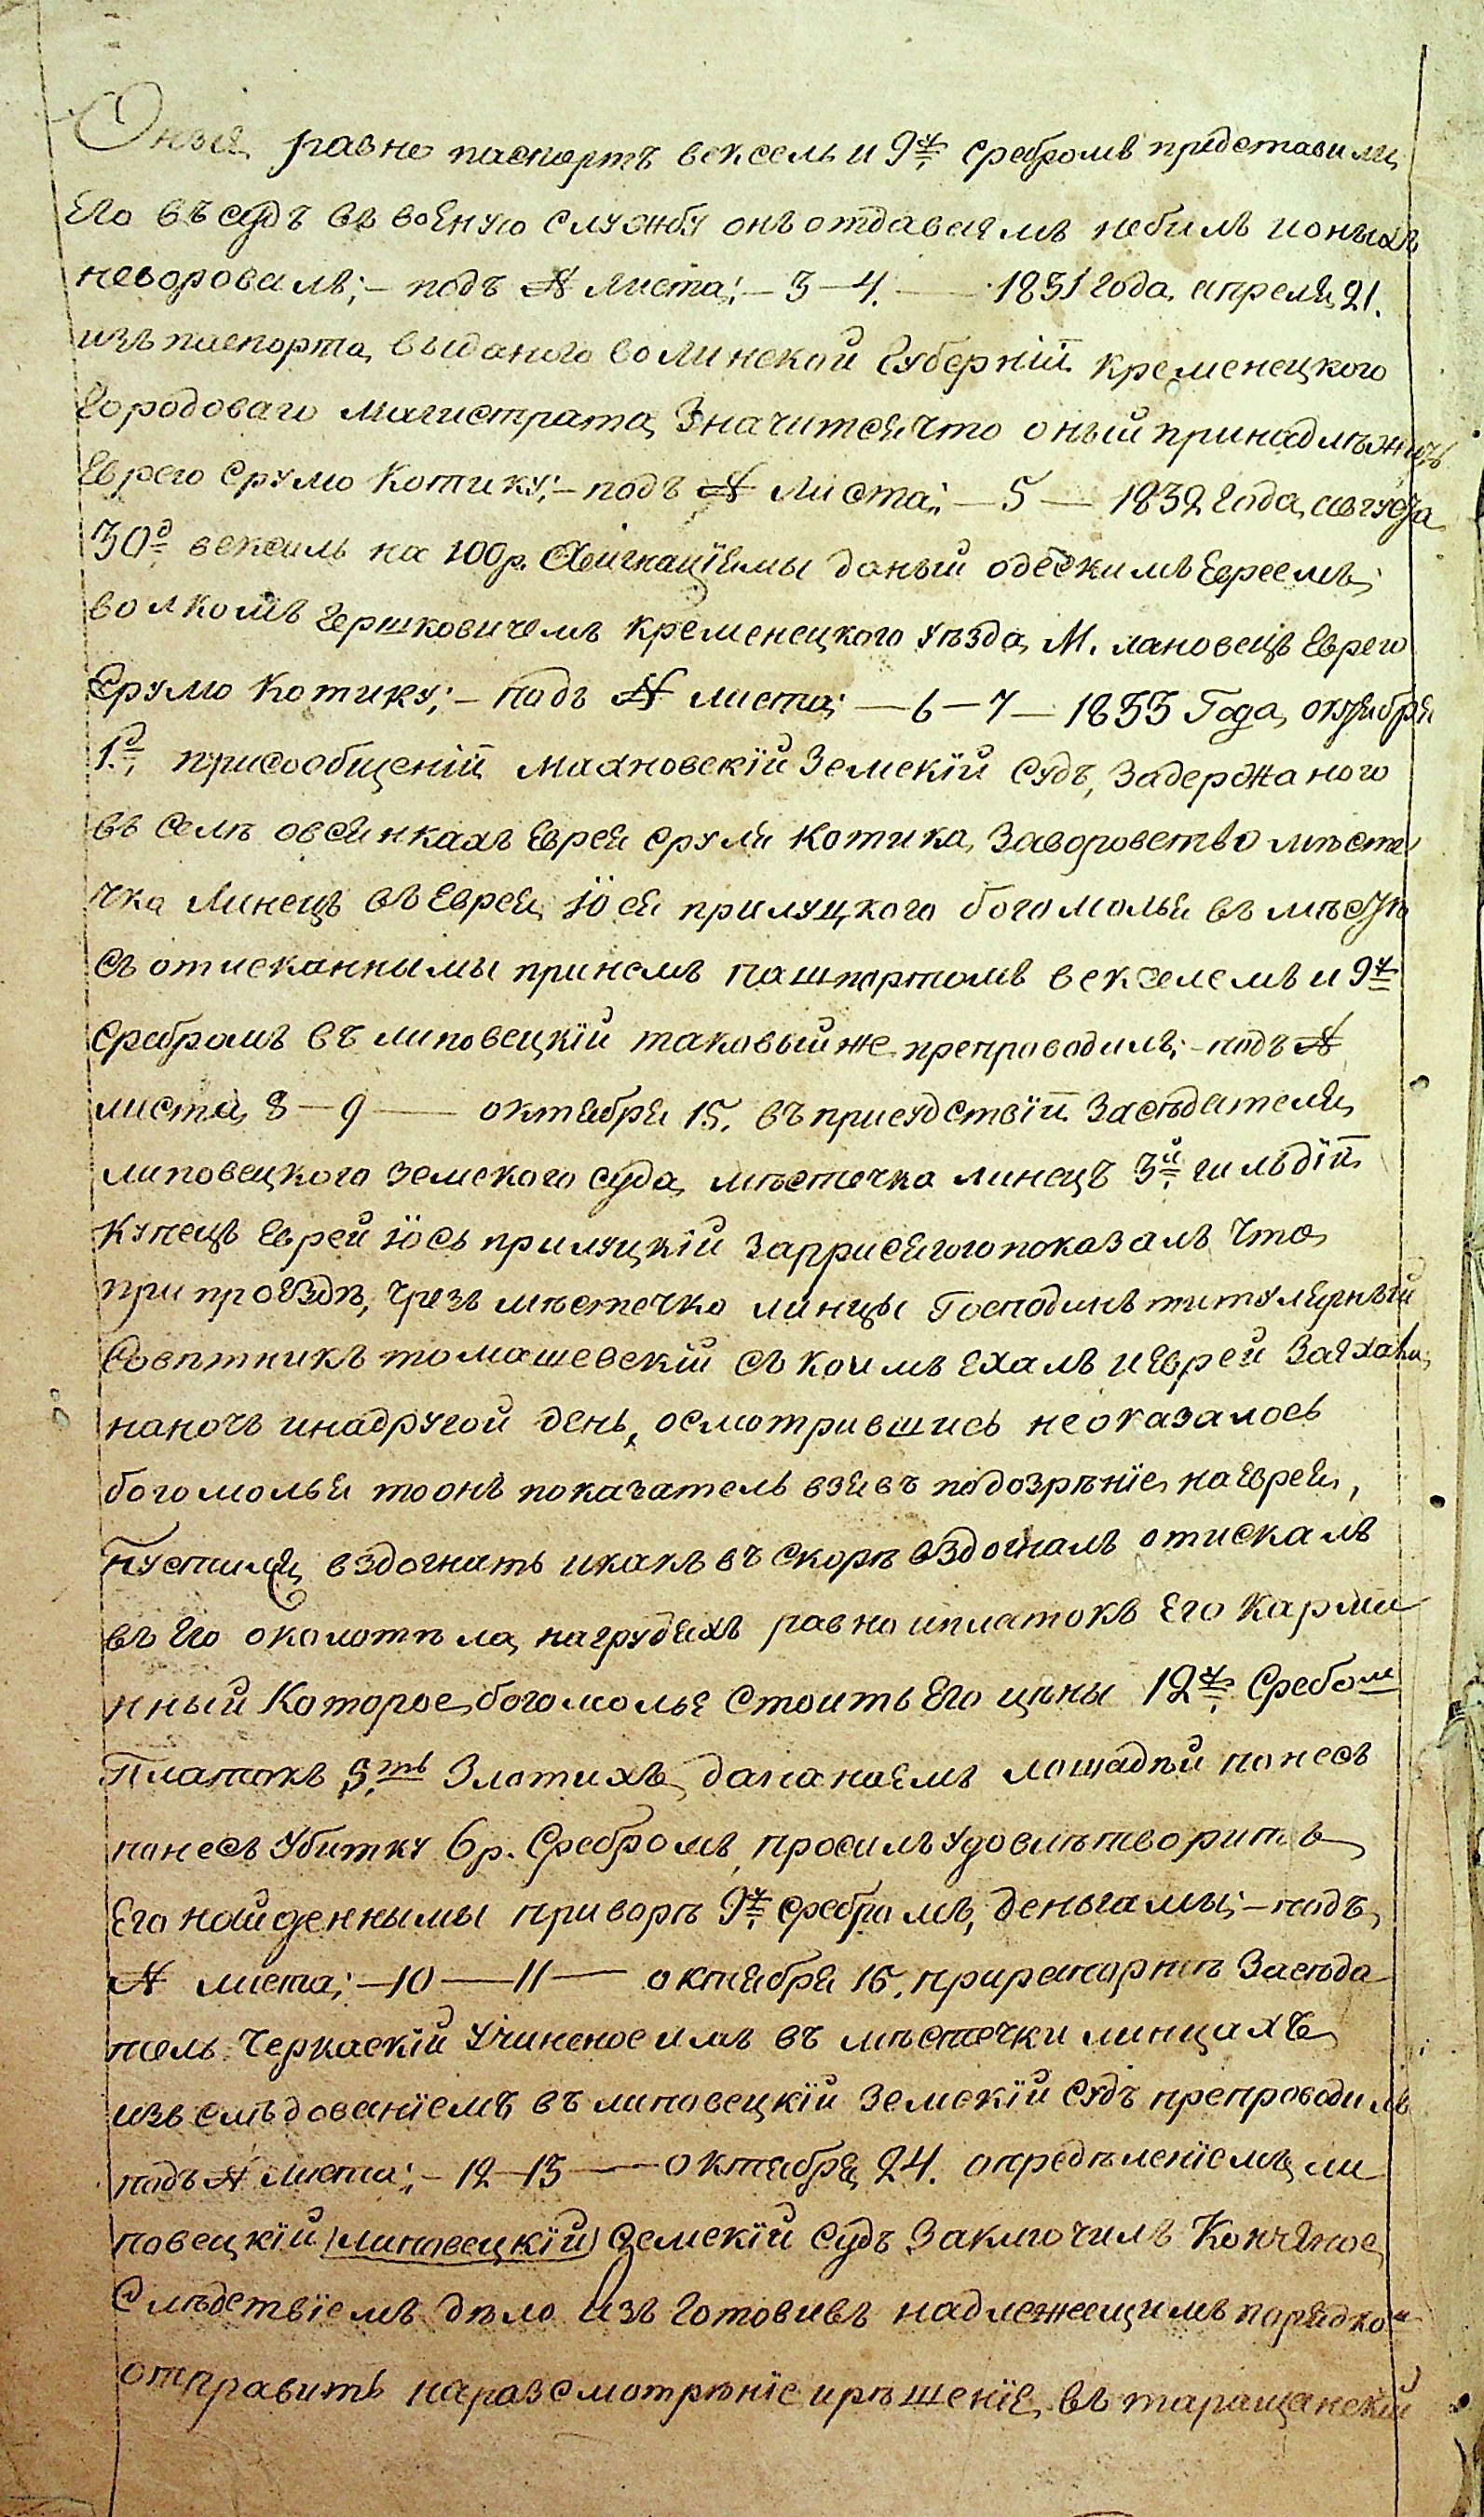 Оныя равно паспортъ вексель и 9 ч: сребромъ прıдставили
Его въ судъ въ воЕную службу онъ отдаваямъ небилъ ионыхъ
неворовалъ; – подъ № листа; – 3 – 4. — 1831 года апреля 21.
изъ паспорта выданого волинской Губерніи кременецкого
Городоваго магистрата Значится что оный принадлѣжитъ
Еврею Срулю Котику; – подъ № листа; – 5 – 1832 года августа
30 д вексиль на 100 р. Асигнаціемы даный одескимъ Евреемъ
волкомъ гершковичемъ кременецкого уѣзда М. лановецъ Еврею
Срулю Котику; – подъ № листа; – 6 – 7 – 1833 Года октября
1 д; присообщеній махновскій Земскій Судъ, Задержаного
въ селѣ овсянкахъ Еврея сруля котика, Заворовство мѣсте
чка Линецъ въ Еврея Юся прилуцкого богомолья въ мѣстѣ
съ отисканнымы принемъ пашпортомъ векселемъ и 9 ч
сребромъ въ липовецкій таковый же препроводилъ; – подъ №
листа, 8 – 9 — октября 15. въ присудствіи Засѣдателя
липовецкого земского суда, мѣстечка линецъ 3 й: гильдіи
Купецъ Еврей Юсь прилуцкій Заррисягого показалъ что
при проѢздѣ, чрезъ мѣстечко линцы Господинъ титулярный
Совѣтникъ томашевскій съ коимъ Ехалъ иЕврей ЗаЕхали
наночъ инадругой день, осмотрившись неоказалось
богомолья тоонъ показатель взявъ подозрѣніе наЕврея,
пустился вздогнать икакъ въ скорѣ вздогналъ отискалъ
въ Его околотѣла, нагрудяхъ равно иплатокъ Его Карма
нный Которое богомолье Стоить Его цѣны 12 ч: Сребом
Платокъ 5 ть Злотихъ, дапанаемъ лошадѣй понесъ
понесъ Убитку 6 р. Сребромъ, просилъ удовлѣтворить
Его найденнымы приворѣ 9 ч: сребромъ, деньгамы; – подъ
№ листа; – 10 — 11 — октября 16, прирапортѣ Засѣда
тель Черкаскій Учиненое имъ въ мѣстечки линцахъ
изъ слѣдованіемъ въ липовецкій земскій судъ препроводилъ
подъ № листа; – 12 – 13 — октября 24. опредѣленіемъ ли
повецкій (липовецкій) Земскій судъ Заключилъ Конченое
Слѣдствіемъ дѣло Изъ готовивъ надлежащимъ порядком
отправить наразсмотрѣніе ирѣшеніЕ въ таращанскій